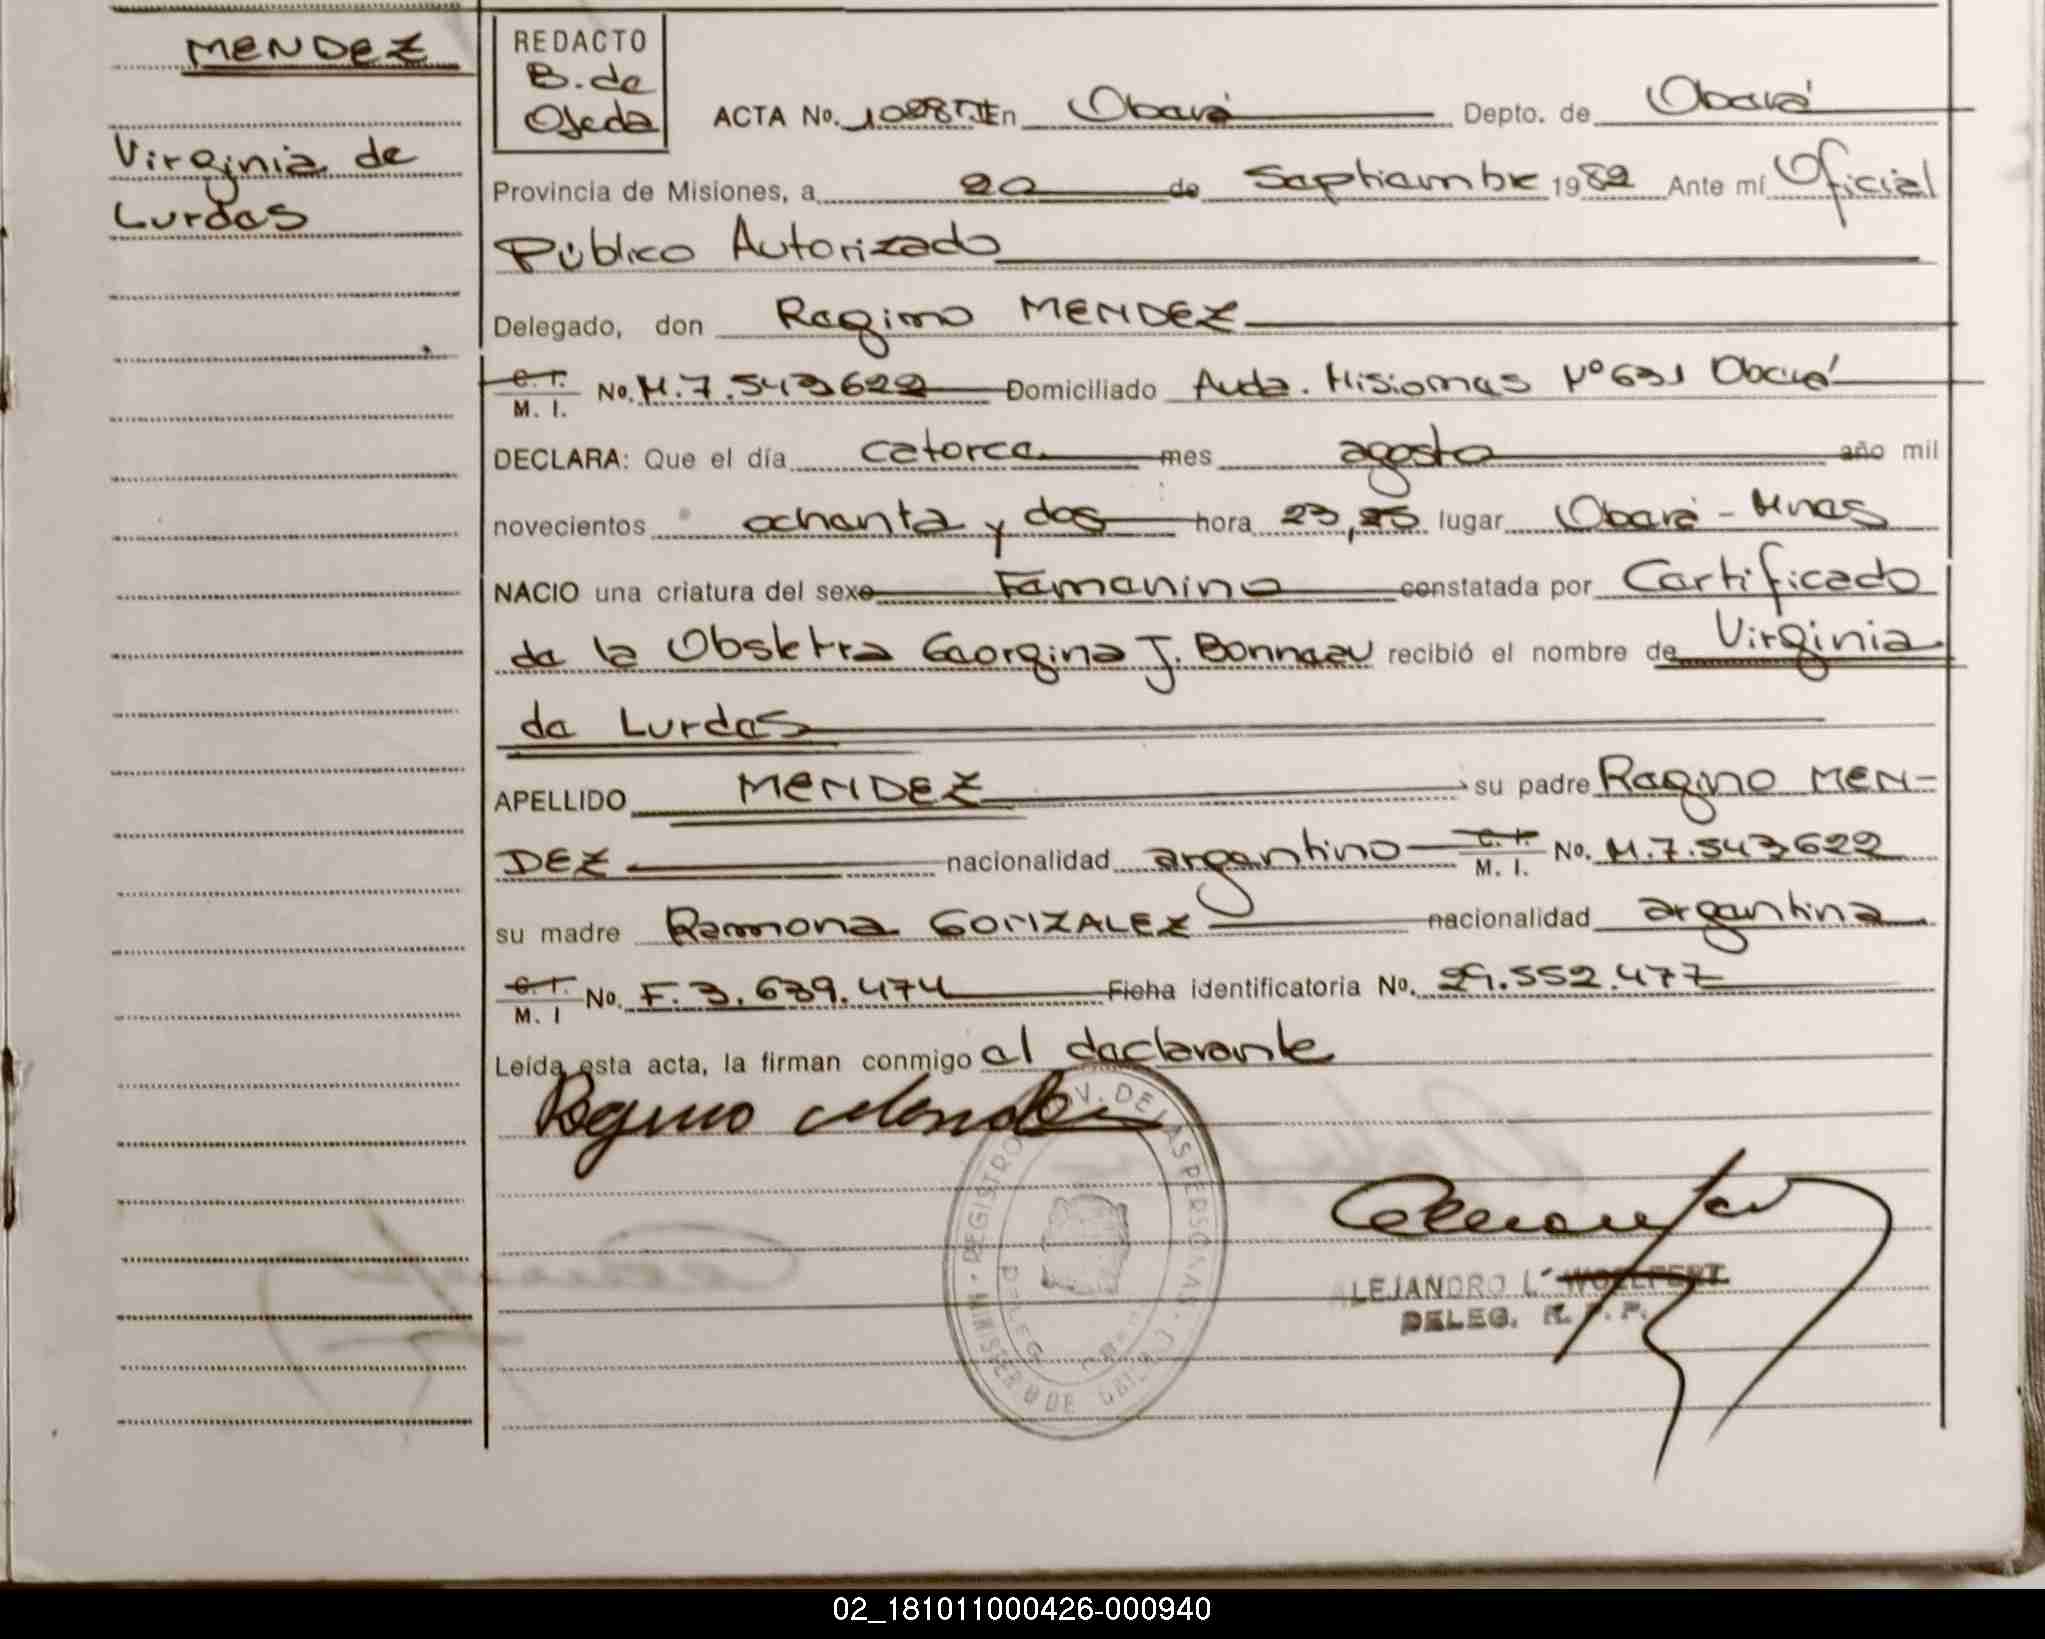 MENDEZ
Virginia de
Lurdes
REDACTO
B. de
Ojeda
ACTA No. 1088 En Oberá Depto. de Oberá
Provincia de Misiones, a 20 de Septiembre 1982 Ante mí Oficial
Público Autorizado
Delegado, don Regino MENDEZ
C. I.
M. I. No. M.7.543622 Domiciliado Avda. Misiones Nº 631 Oberá
DECLARA: Que el día catorce mes agosto año mil
novecientos ochenta y dos hora 23,25 lugar Oberá - Mnes
NACIO una criatura del sexo Femenino constatada por Certificado
de la Obstetra Georgina J. Bonneau recibió el nombre de Virginia
de Lurdes
APELLIDO MENDEZ su padre Regino MEN-
DEZ nacionalidad argentino C. I.
M. I. No. M.7.543622
su madre Ramona GONZALEZ nacionalidad argentina
C. I.
M. I No. F. 3.639.474 Ficha identificatoria No. 29.552.477
Leída esta acta, la firman conmigo el declarante
Regino Mendez
MINISTERIO DE REGISTRO DE LAS PERSONAS
ALEJANDRO L. WOELFERT
DELEG. R. P. P.
02_181011000426-000940